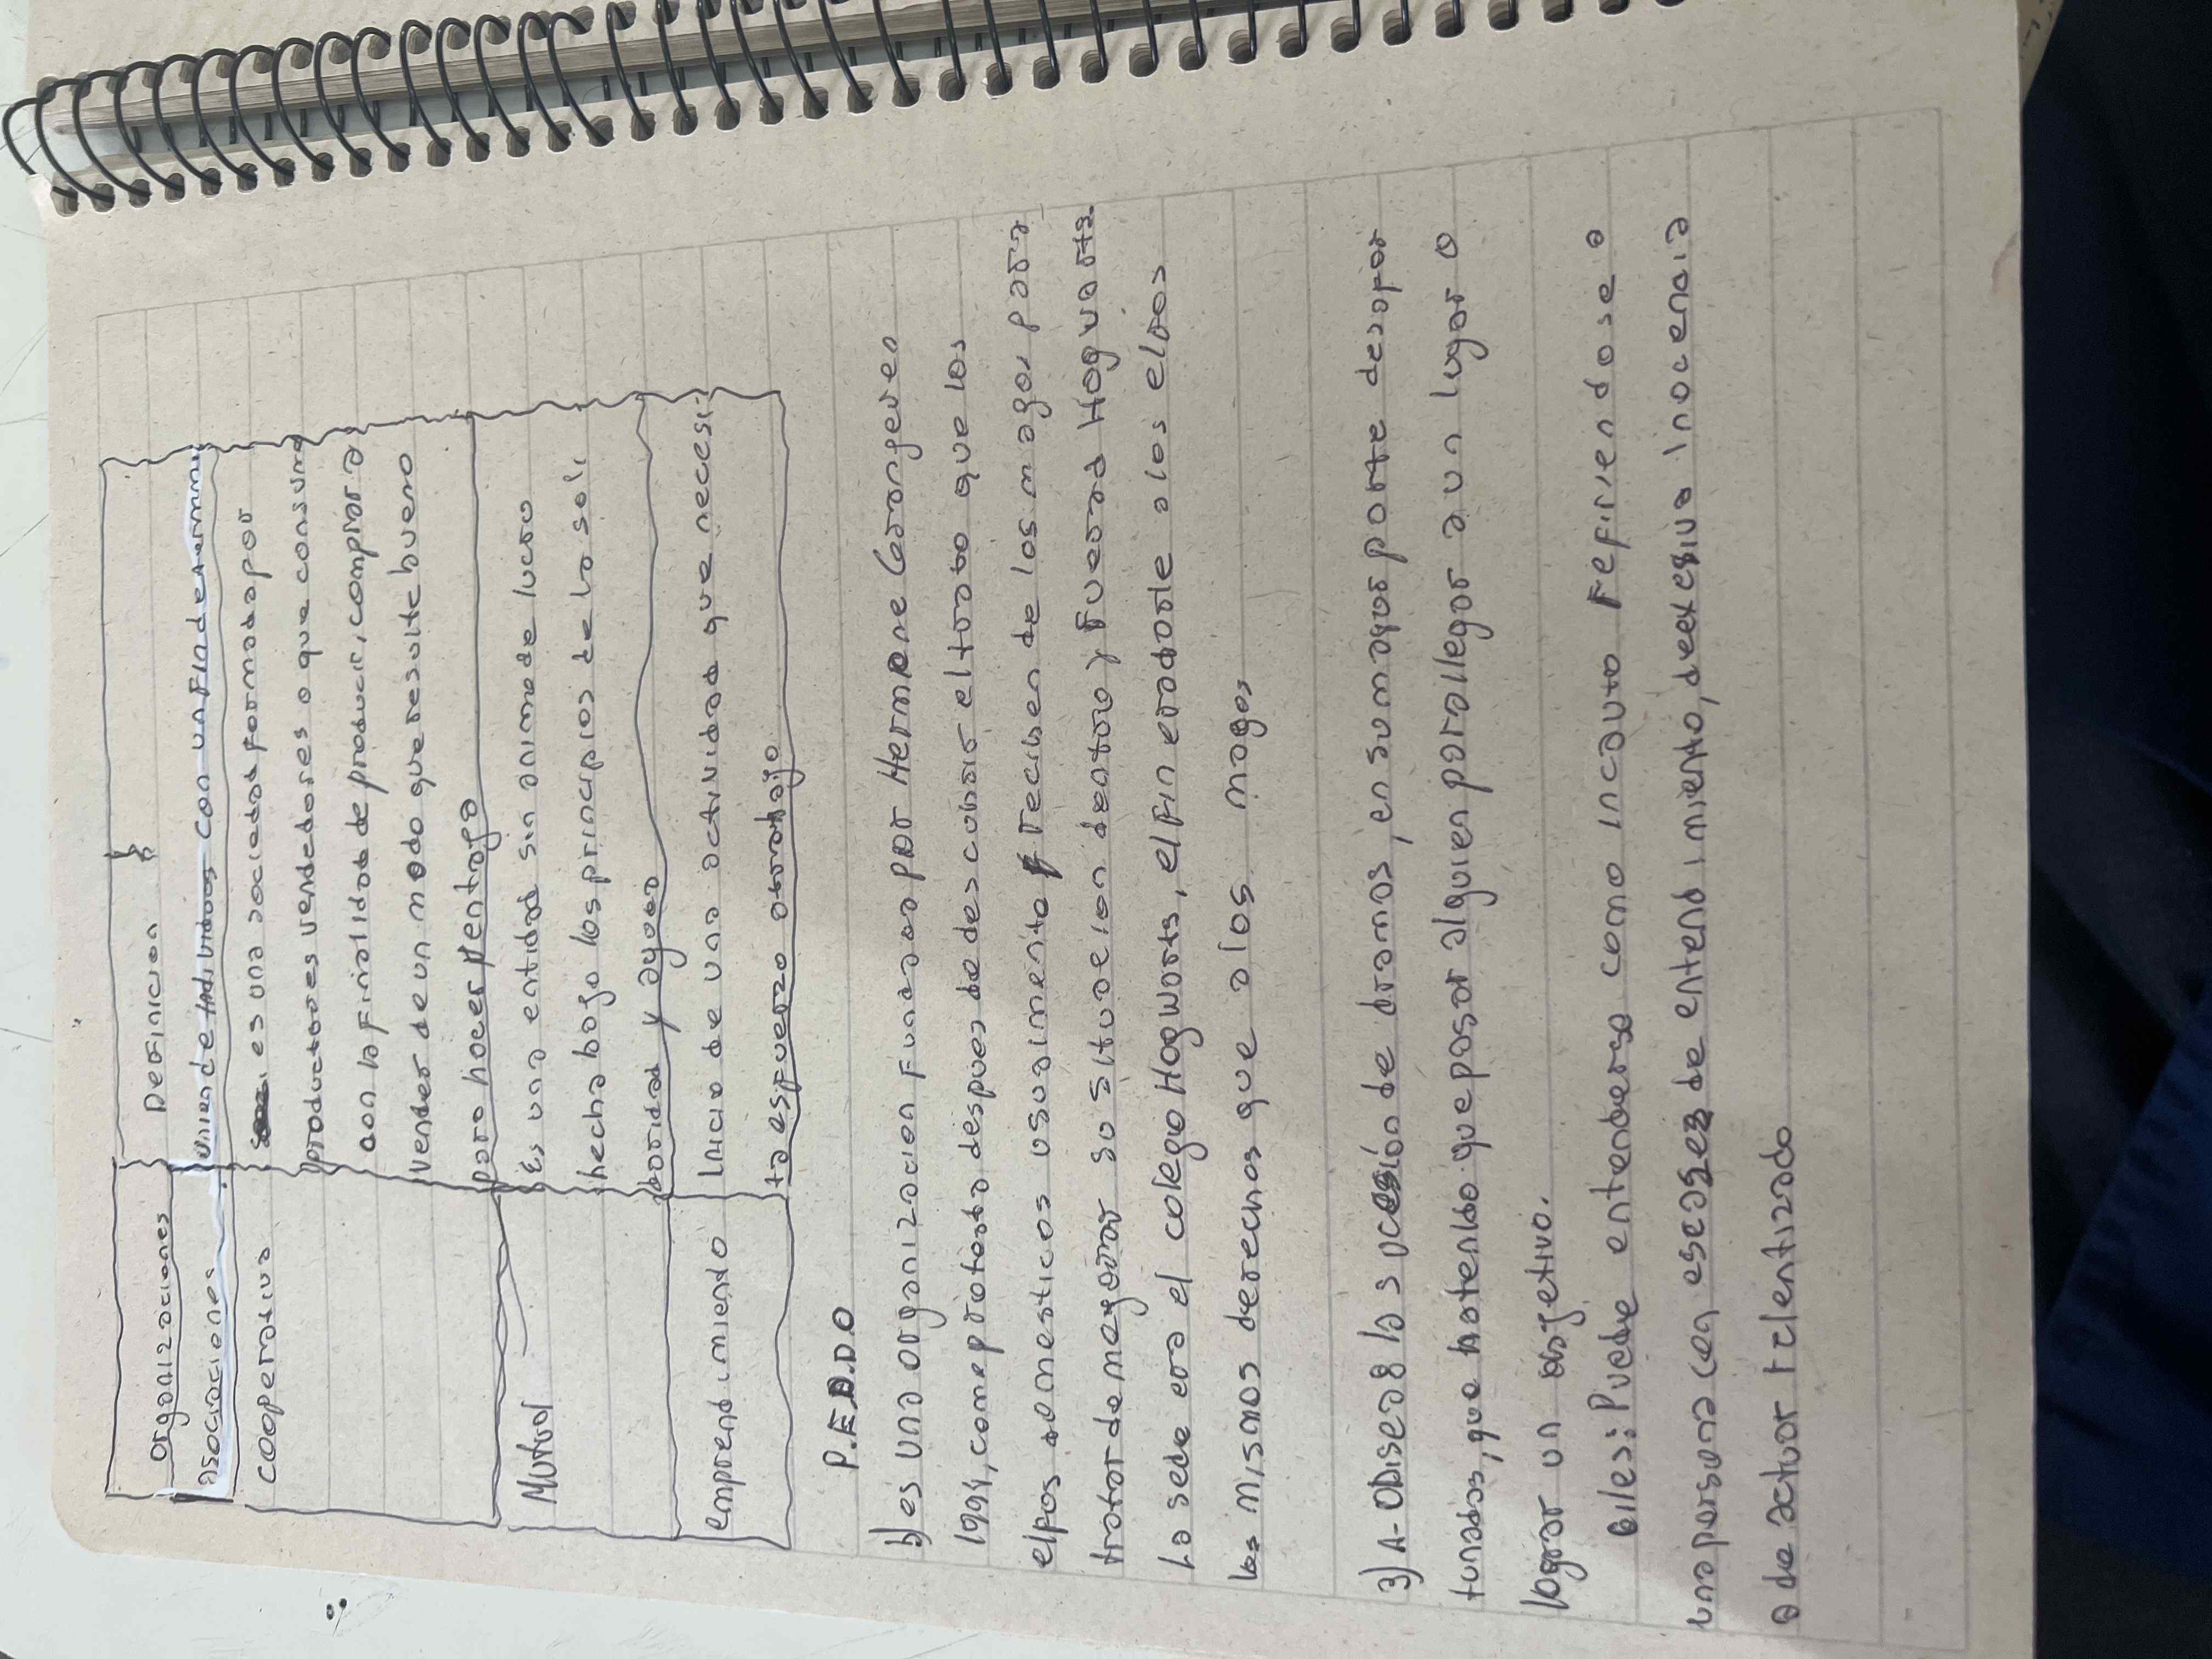 organizaciones Definicion
asociaciones union de individuos con un fin determin
cooperativa es una sociedad formada por
productores vendedores o que consume
con la finalidad de producir, comprar a
vender de un modo que resulte bueno
para hacer ventaja
Mutual Es una entidad sin animo de lucro
hecha bajo los principios de la soli
daridad y ayuda
emprendimiento Inicio de una actividad que necesi-
ta esfuerzo o trabajo
P.E.D.D.O
b) es una organizacion fundada por Hermione Granger en
1994, como protesta despues de descubrir el trato que los
elfos domesticos usualmente reciben de los magos para
tratar de mejorar su situacion dentro y fuera Hogwarts.
La sede era el colegio Hogworts, el fin era darle a los elfos
los mismos derechos que a los magos
3) A- Odisea: la sucesión de dramas, en su mayor parte desafor
tunados, que ha tenido que pasar alguien para llegar a un lugar o
lograr un objetivo.
Giles: Puede entenderse como incauto refiriendose a
una persona con escases de entendimiento, de excesiva inocencia
o de actuar relentizado